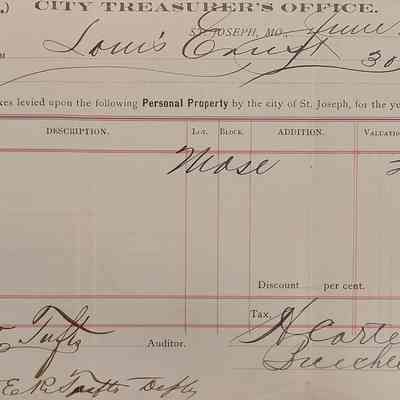 .) CITY TREASURER'S OFFICE.
ST. JOSEPH, MO., June
M Louis Ernst 30
xes levied upon the following Personal Property by the city of St. Joseph, for the yea
DESCRIPTION. Lot. Block. ADDITION. VALUATION
Mose 2
Discount per cent.
Tax,
Tufts Auditor. H Carte
E R Tufts Depty